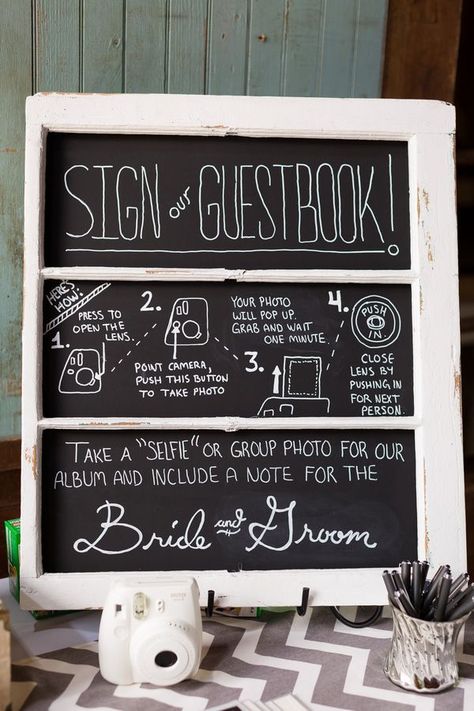 SIGN our GUESTBOOK!
HERE'S
HOW!
1.
PRESS TO
OPEN THE
LENS.
2.
POINT CAMERA,
PUSH THIS BUTTON
TO TAKE PHOTO
YOUR PHOTO
WILL POP UP.
GRAB AND WAIT
ONE MINUTE.
3.
4.
PUSH
IN
CLOSE
LENS BY
PUSHING IN
FOR NEXT
PERSON.
TAKE A "SELFIE" OR GROUP PHOTO FOR OUR
ALBUM AND INCLUDE A NOTE FOR THE
Bride and Groom